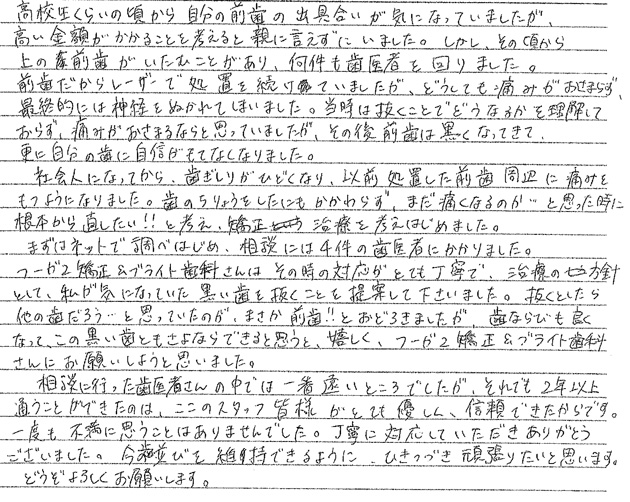 高校生くらいの頃から自分の前歯の出具合いが気になっていましたが、
高い金額がかかることを考えると親に言えずにいました。しかし、その頃から
上の前歯がいたむことがあり、何件も歯医者を回りました。
前歯だからレーザーで処置を続けていましたが、どうしても痛みがおさまらず、
最終的には神経をぬかれてしまいました。当時は抜くことでどうなるかを理解して
おらず、痛みがおさまるならと思っていましたが、その後前歯は黒くなってきて、
更に自分の歯に自信がもてなくなりました。
社会人になってから、歯ぎしりがひどくなり、以前処置した前歯周辺に痛みを
もつようになりました。歯のちりょうをしたにもかかわらず、まだ痛くなるのか…と思った時に
根本から直したい!!と考え、矯正治療を考えはじめました。
まずはネットで調べはじめ、相談には4件の歯医者にかかりました。
フーガ2矯正&ブライト歯科さんはその時の対応がとても丁寧で、治療の方針
として、私が気になっていた黒い歯を抜くことを提案して下さいました。抜くとしたら
他の歯だろう…と思っていたのが、まさか前歯!!とおどろきましたが、歯ならびも良く
なって、この黒い歯ともさよならできると思うと、嬉しく、フーガ2矯正&ブライト歯科
さんにお願いしようと思いました。
相談に行った歯医者さんの中では一番遠いところでしたが、それでも2年以上
通うことができたのは、ここのスタッフ皆様がとても優しく、信頼できたからです。
一度も不満に思うことはありませんでした。丁寧に対応していただきありがとう
ございました。今歯並びを維持できるように、ひきつづき頑張りたいと思います。
どうぞよろしくお願いします。